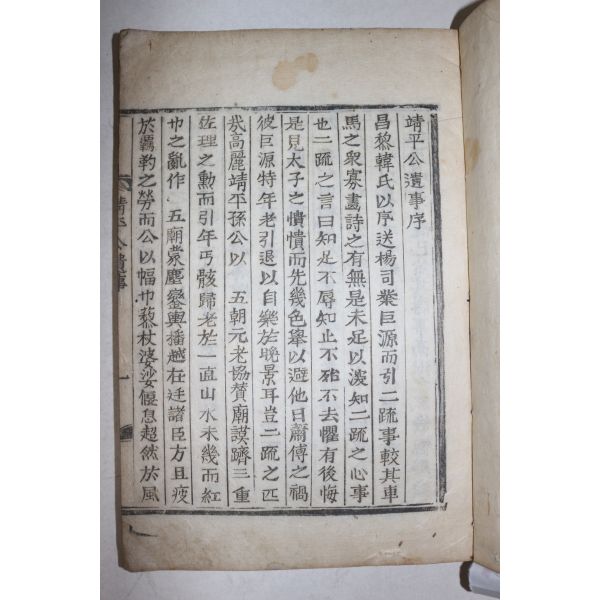 靖平公遺事序
昌黎韓氏以序送楊司業巨源而引二疏事較其車
馬之衆寡畵詩之有無是未足以深知二疏之心事
也二疏之言曰知足不辱知止不殆不去懼有後悔
是見太子之憒憒而先幾色擧以避他日蕭傅之禍
彼巨源特年老引退以自樂於晩景耳豈二疏之匹
哉高麗靖平孫公以 五朝元老協贊廟謨躋三重
佐理之勳而引年丐骸歸老於一直山水未幾而紅
巾之亂作 五廟蒙塵鑾輿播越在廷諸臣方且疲
於羈靮之勞而公以幅巾藜杖婆娑偃息超然於風
靖平公遺事 一